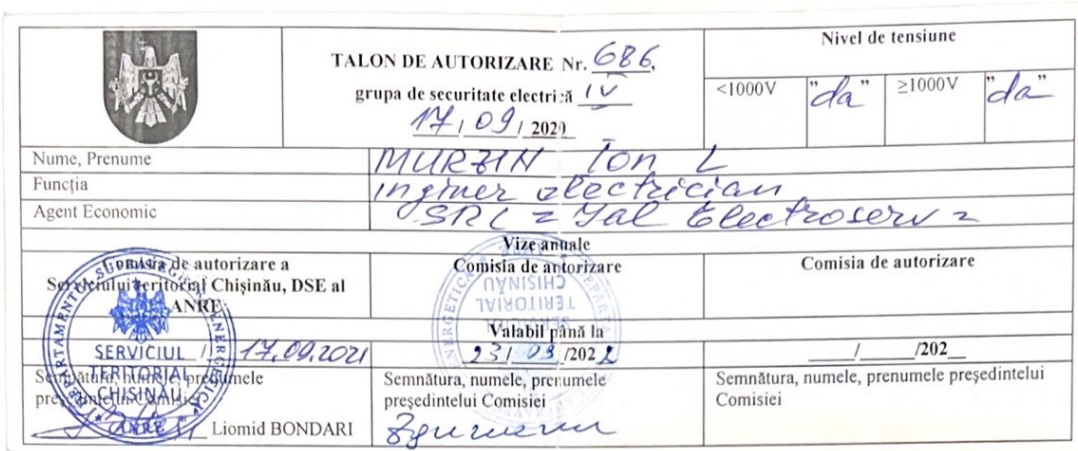 TALON DE AUTORIZARE Nr. 686,
grupa de securitate electrică IV
17 / 09 / 2020
Nivel de tensiune
<1000V "da" ≥1000V "da"
Nume, Prenume MURZIN Ion L
Funcția inginer electrician
Agent Economic SRL = Yal Electroserv =
Vize anuale
Comisia de autorizare a
Serviciului teritorial Chișinău, DSE al
ANRE
Comisia de autorizare
Comisia de autorizare
Valabil până la
17.09.2021
23 / 09 / 2022
/ /202
Semnătura, numele, prenumele
președintelui Comisiei
Liomid BONDARI
Semnătura, numele, prenumele
președintelui Comisiei
Semnătura, numele, prenumele președintelui
Comisiei
SERVICIUL
TERITORIAL
CHIȘINĂU
ANRE
SERVICIUL
TERITORIAL
CHIȘINĂU